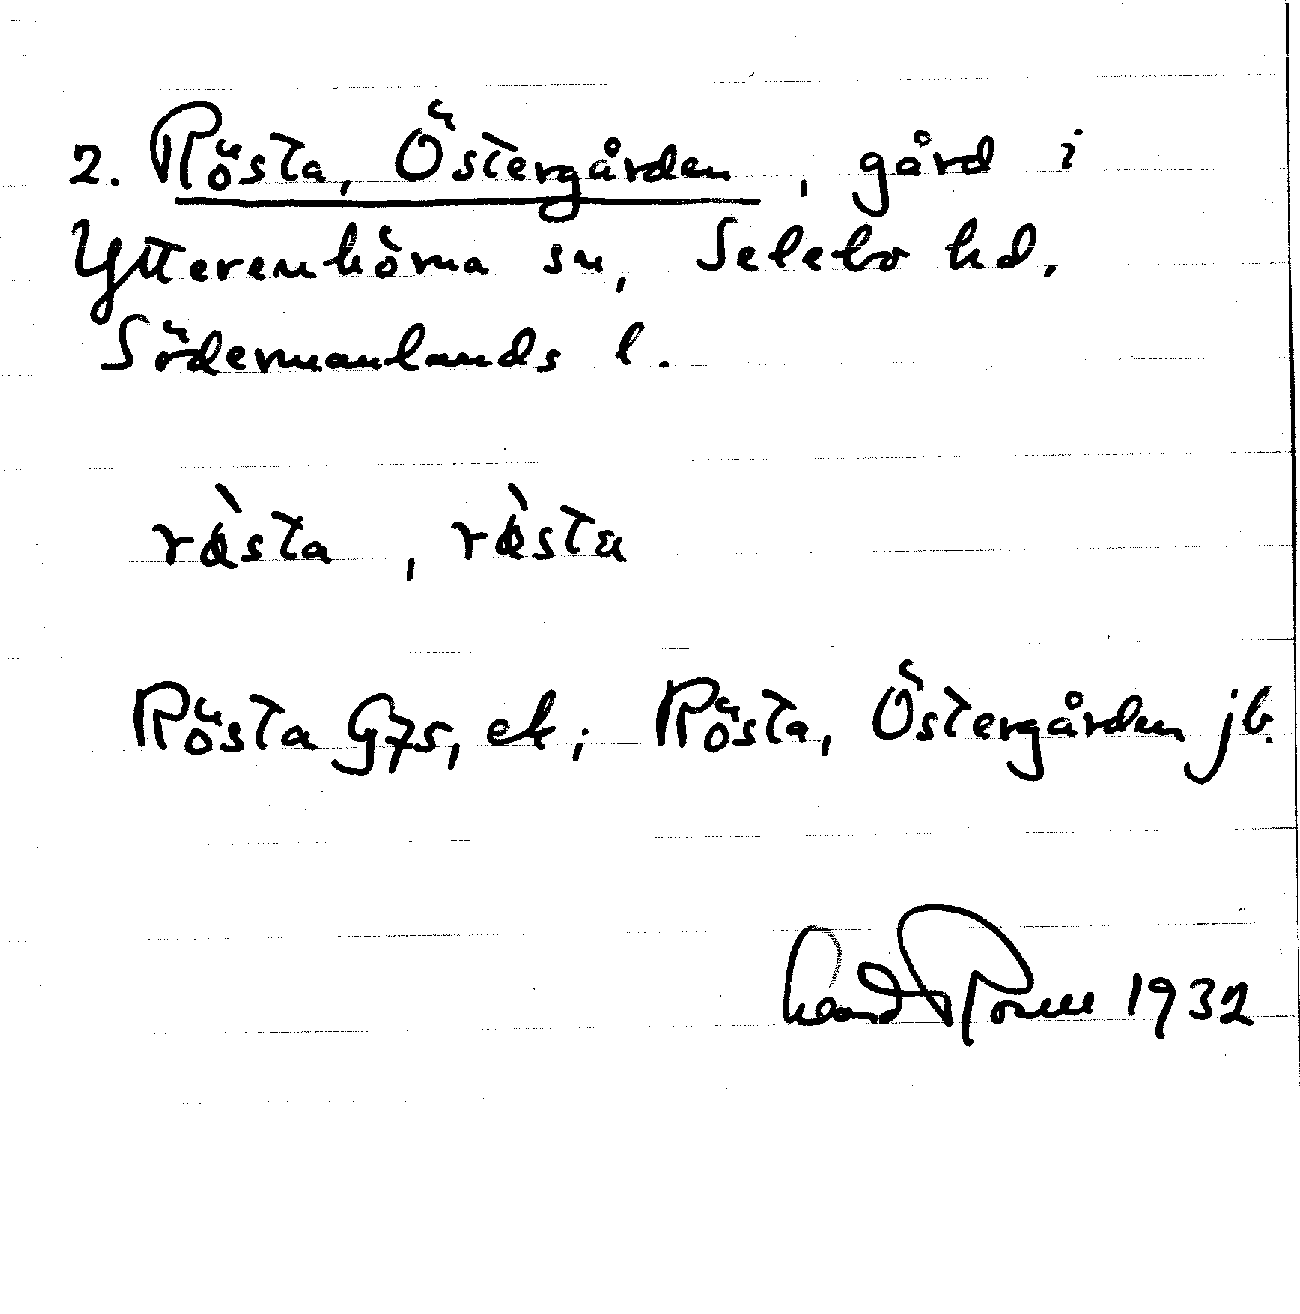 2. Rösta, Östergården, gård i
Ytterenhörna sn, Selebo hd,
Södermanlands l.
rø̀sta, rø̀sta
Rösta G75, ek; Rösta, Östergården jb.
1932